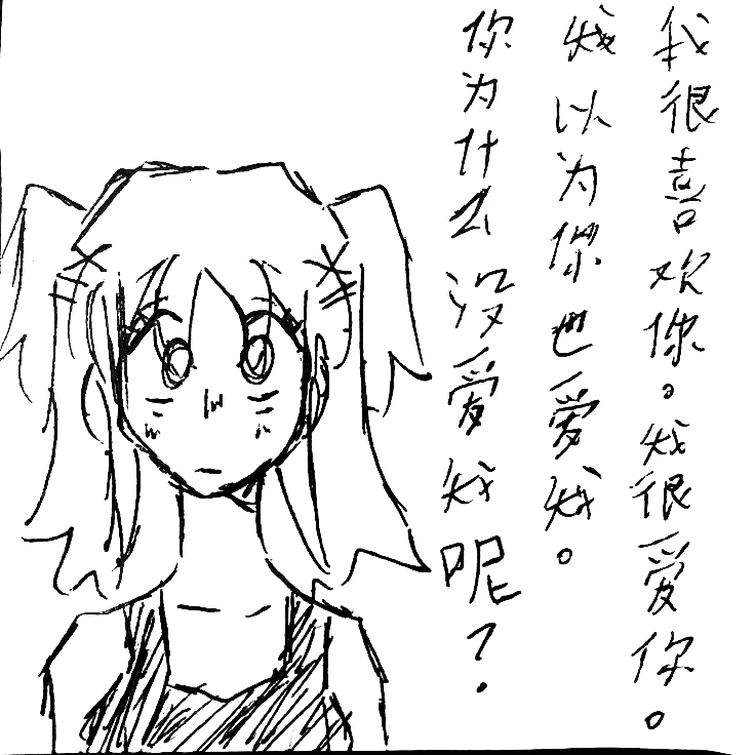 我很喜欢你。我很爱你。
我以为你也爱我。
你为什么没爱我呢？